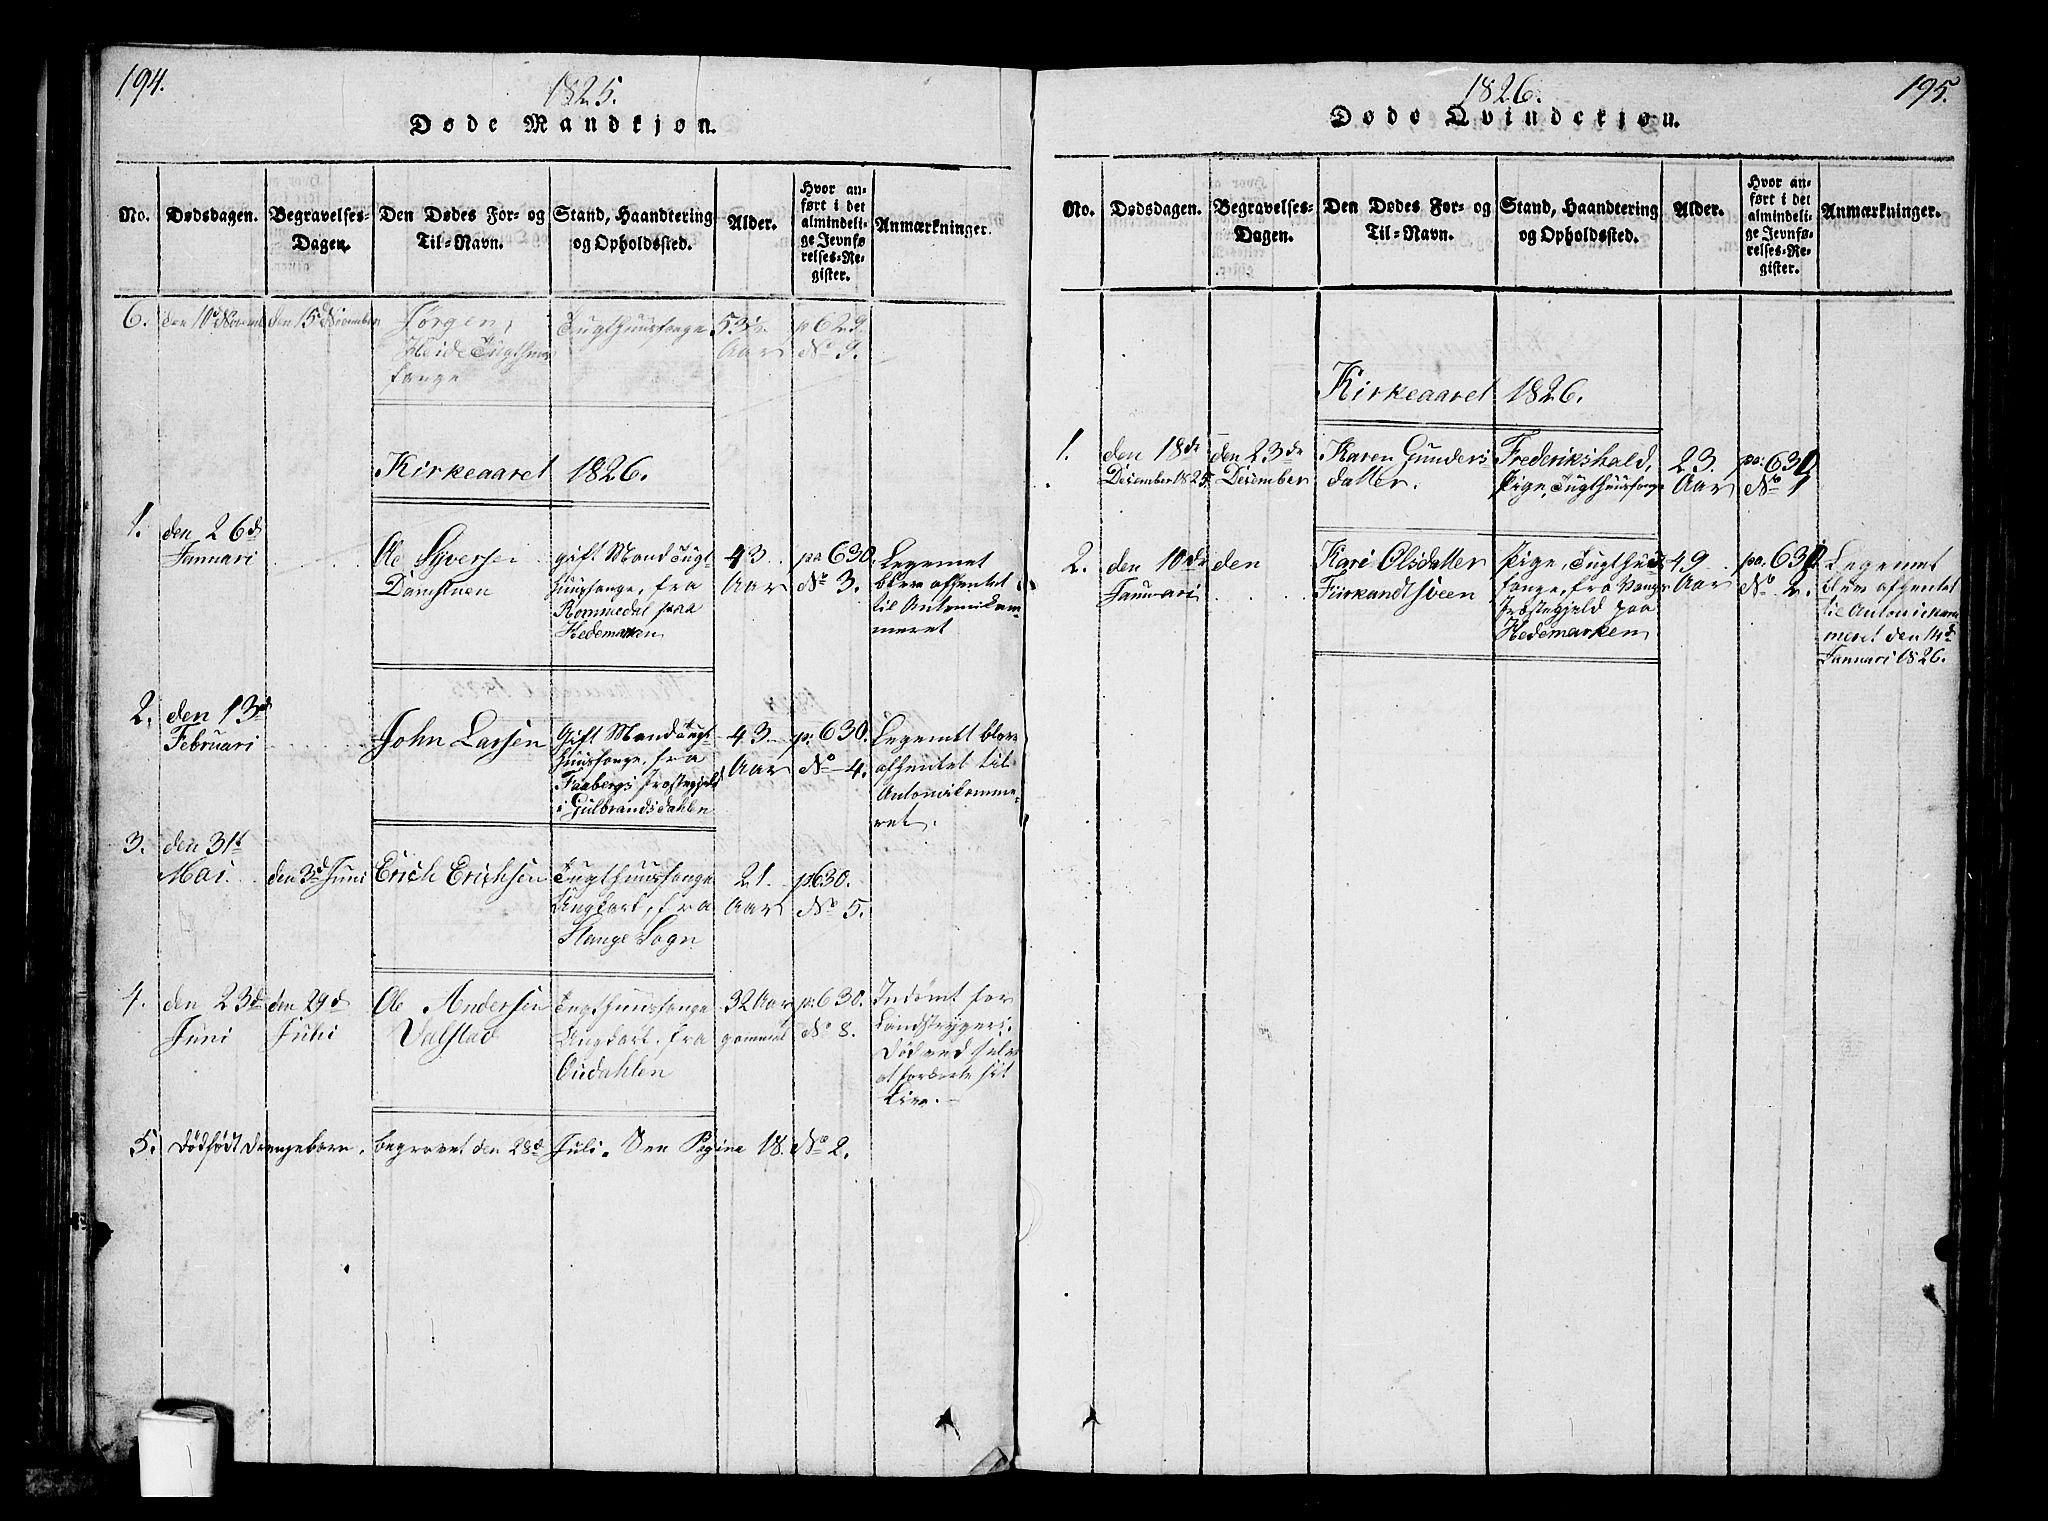 194.
1825.
Døde Mandkjøn.
No.
Dødsdagen.
Begravelses-
Dagen.
Den Dødes For- og
Til-Navn.
Stand, Haandtering
og Opholdssted.
Alder.
Hvor an-
ført i det
almindeli-
ge Jevnfø
relses-Re-
gister.
Anmærkninger.
6. den 10d Novemb. den 15d November Jørgen, Tugthuusfange 53½ p 629.
Heide Tugthuus Aar No 9.
fange
Kirkeaaret 1826.
1. den 26d
Januari
Ole Syversen
Damstuen
gift Mand Tugt-
huusfange, fra
Rommedal paa
Hedemarken
43
Aar
pa 630.
No 3.
Legemet
blev afhentet
til Antomikam-
meret
2. den 13d
Februari
John Larsen
Gift Mand Tugt-
huusfange, fra
Faabergs Præstegjeld
i Gulbrandsdahlen
43
Aar
p. 630.
No 4.
Legemet blev
afhentet til
Antomikamme-
ret.
3. den 31t
Mai.
den 3d Juni
Erich Erichsen
Tugthuusfange
Ungkarl, fra
Stange Sogn
21.
Aar
p. 630.
No 5.
4. den 23d
Juni
den 29d
Juni
Ole Andersen
Valstad
Tugthuusfange
Ungkarl, fra
Oudahlen
32 Aar
gammel
p. 630.
No 8.
Indømt for
Landstrygeri.
Død ved selv
at forkorte sit
Liv.
5. Dødfødt Drengebarn, begravet den 28d Juli. See Pagina 18. No 2.
195.
1826.
Døde Qvindekjøn.
No.
Dødsdagen.
Begravelses-
Dagen.
Den Dødes For- og
Til-Navn.
Stand, Haandtering
og Opholdssted.
Alder.
Hvor an-
ført i det
almindeli-
ge Jevnfø-
relses-Re-
gister.
Anmærkninger.
Kirkeaaret 1826.
1. den 18de
Desember 1825.
den 23de
Desember
Karen Gunders
datter.
Frederikshald,
Pige, Tugthuusfange
23.
Aar
pa. 630
No 1
2. den 10de
Januari
den
Kari Olsdatter
Fürkandtsveen
Pige, Tugthuus
fange, fra Vangs
Præstegjeld paa
Hedemarken
49
Aar
pa. 630.
No 2.
Legemet
blev afhentet
til Antonikam
meret den 14d
Januari 1826.